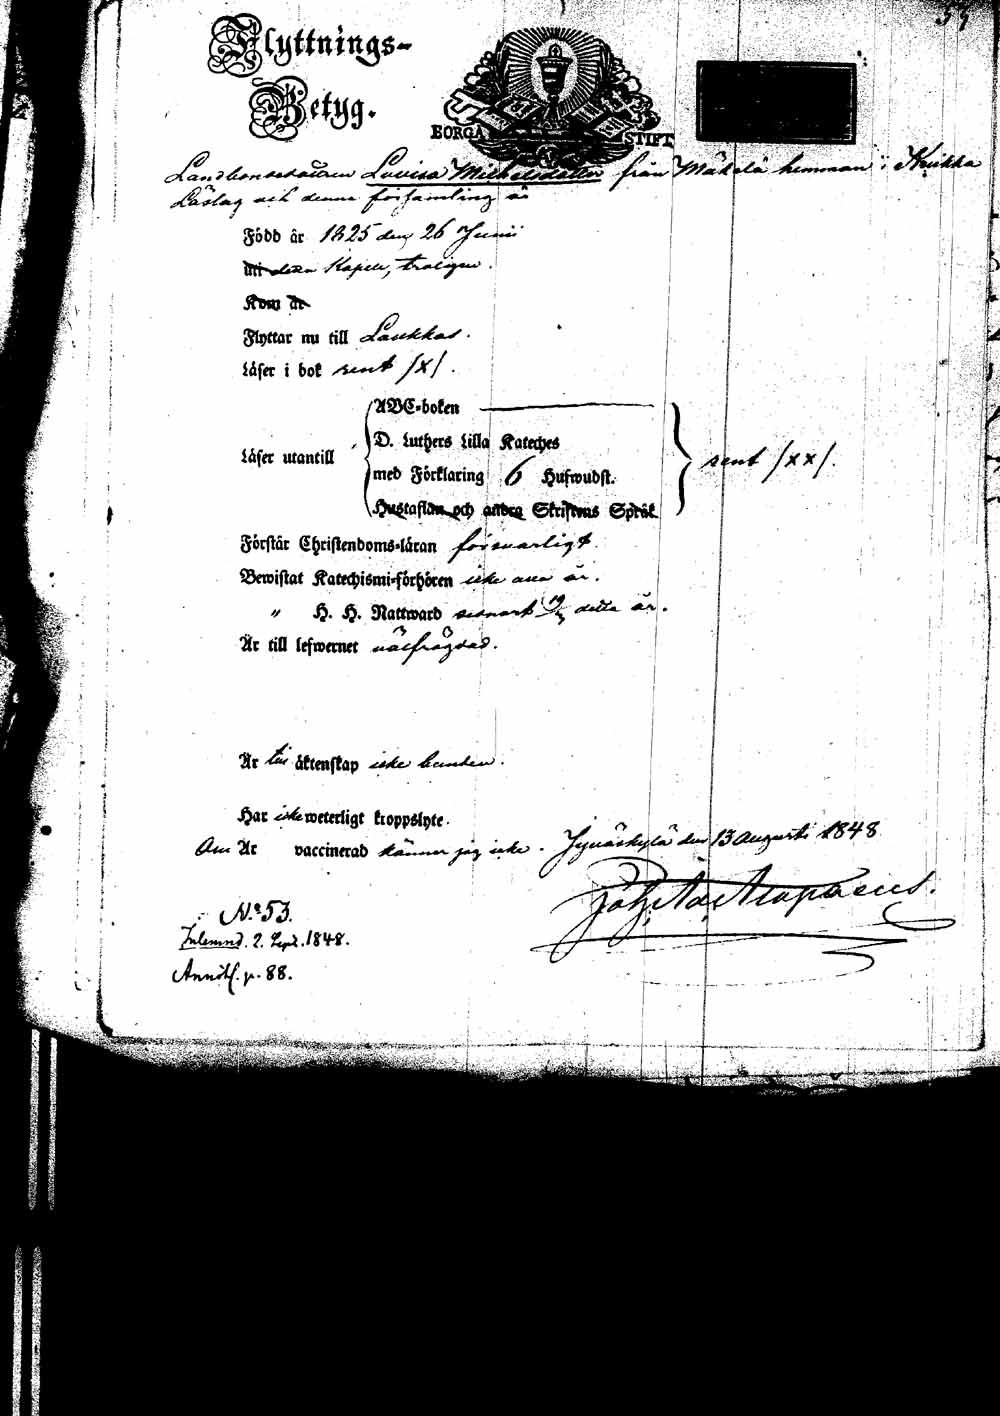 53
Flyttnings-
Betyg.
BORGÅ STIFT
Landbondedottren Lovisa Michelsdotter från Mäkelä hemman i Keikka
Läslag och denna församling är
Född år 1825 den 26 Junii
uti detta Kapell, troligen.
Kom år
Flyttar nu till Laukkas.
Läser i bok rent /x/.
Läser utantill
ABC-boken
D. Luthers Lilla Kateches
med Förklaring 6 Hufwudst.
Hustaflan och andra Skriftens Språk
rent /xx/.
Förstår Christendoms-läran försvarligt.
Bewistat Katechismi-förhören icke alla år.
" H. H. Nattward senast detta år.
Är till lefwernet välfrägdad.
Är till äktenskap icke bunden.
Har icke weterligt kroppslyte.
Om Är vaccinerad känner jag icke. Jyväskylä den 13 Augusti 1848
Joh:
No 53.
Inlemnd. 2. Sept. 1848.
Annótb. p. 88.